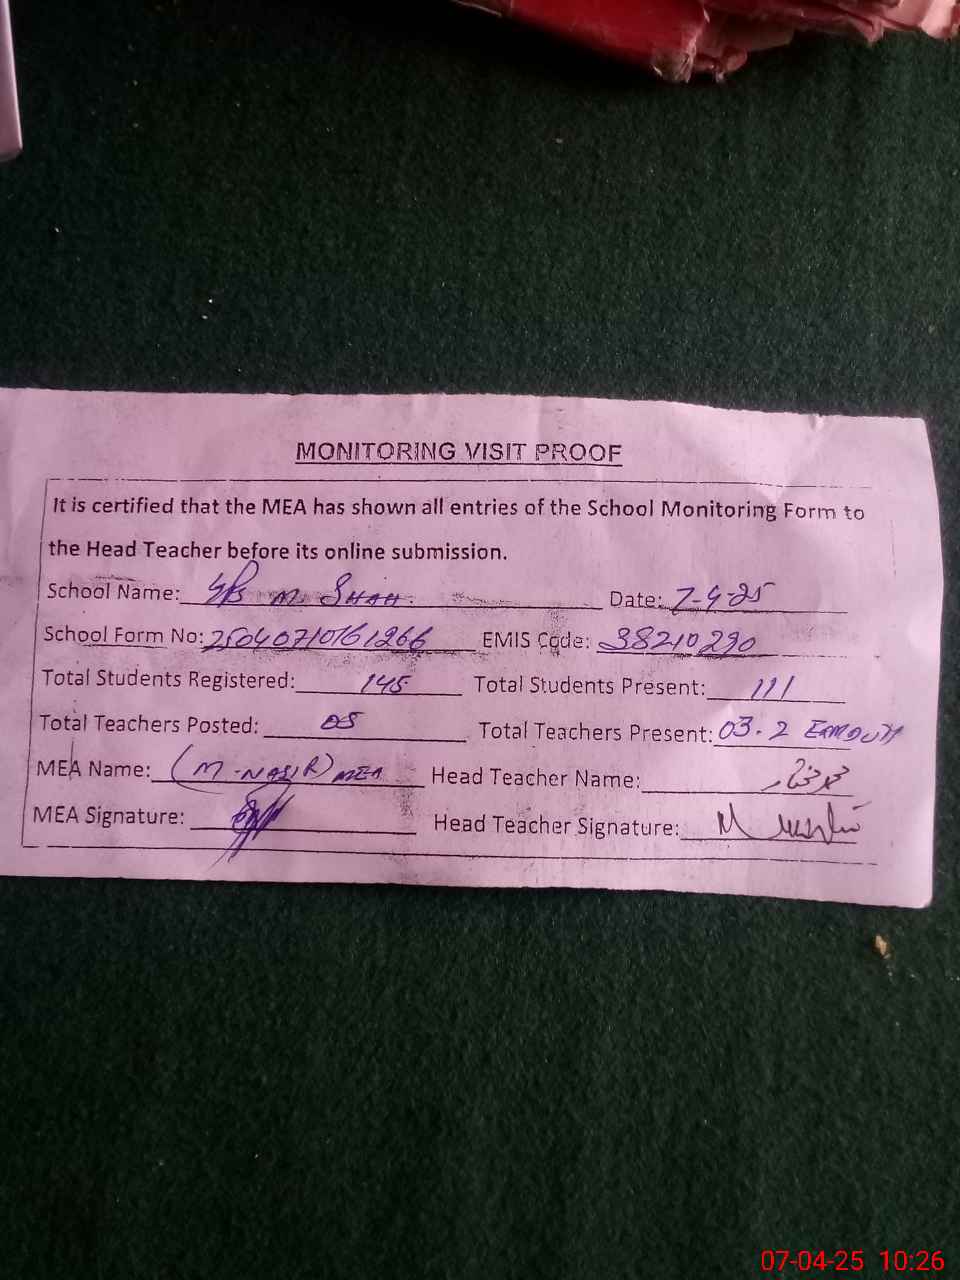 MONITORING VISIT PROOF
It is certified that the MEA has shown all entries of the School Monitoring Form to
the Head Teacher before its online submission.
School Name: M. SHAH. Date: 7-4-25
School Form No: 2504071016 1266 EMIS Code: 38210290
Total Students Registered: 145 Total Students Present: 111
Total Teachers Posted: 05 Total Teachers Present: 03. 2
MEA Name: (M-NASIR) MEA Head Teacher Name: محمد مختار
MEA Signature: Head Teacher Signature:
07-04-25 10:26